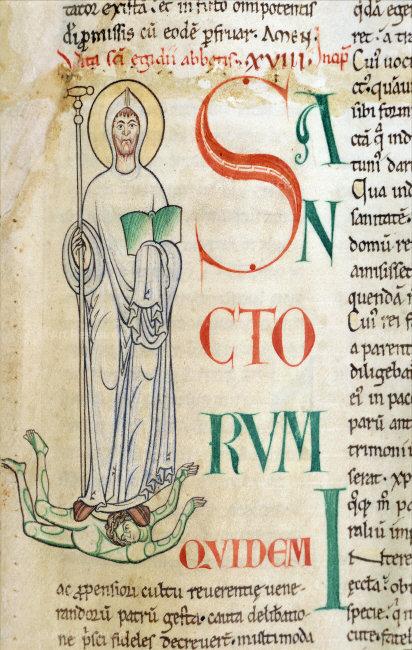 tator exista. et in futo omipotentis
di p̱missis cū eodē p̱fruar. Amen.
Vita sc̄i egidii abbatis. XVIII. Incip̄
SAN
CTO
RVM
QVIDEM
ac p̱pensiori cultu reuerentię uene-
randorū patrū gesta. cauta delibatio-
ne p̄sci fideles decreuert̄. multimoda
qda ege
ret. a tra
Cui uoc
ct. quāui
sibi form
ctā q̄ ind
tum dar
Qua ind
sanitatē.
domū re
amisisset
quendā i
Cui rei f
a parent
diligeba
ei in pac
parū ant
trimoni
serat. xp̄
qq̄ m̄ pa
raliū im
I ntere
eccl̄a. ob
specie. q
cute. fat